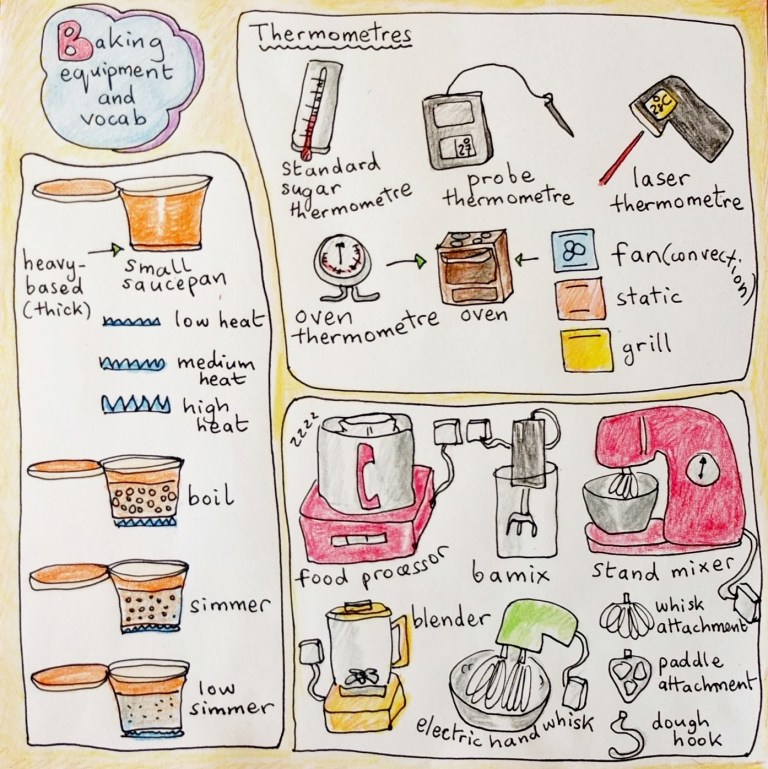 Baking
equipment
and
vocab
Thermometres
standard
sugar
thermometre
probe
thermometre
laser
thermometre
oven
thermometre
oven
fan (convection)
static
grill
heavy-
based
(thick)
small
saucepan
low heat
medium
heat
high
heat
boil
simmer
low
simmer
zzzz
food processor
bamix
stand mixer
blender
electric hand whisk
whisk
attachment
paddle
attachment
dough
hook